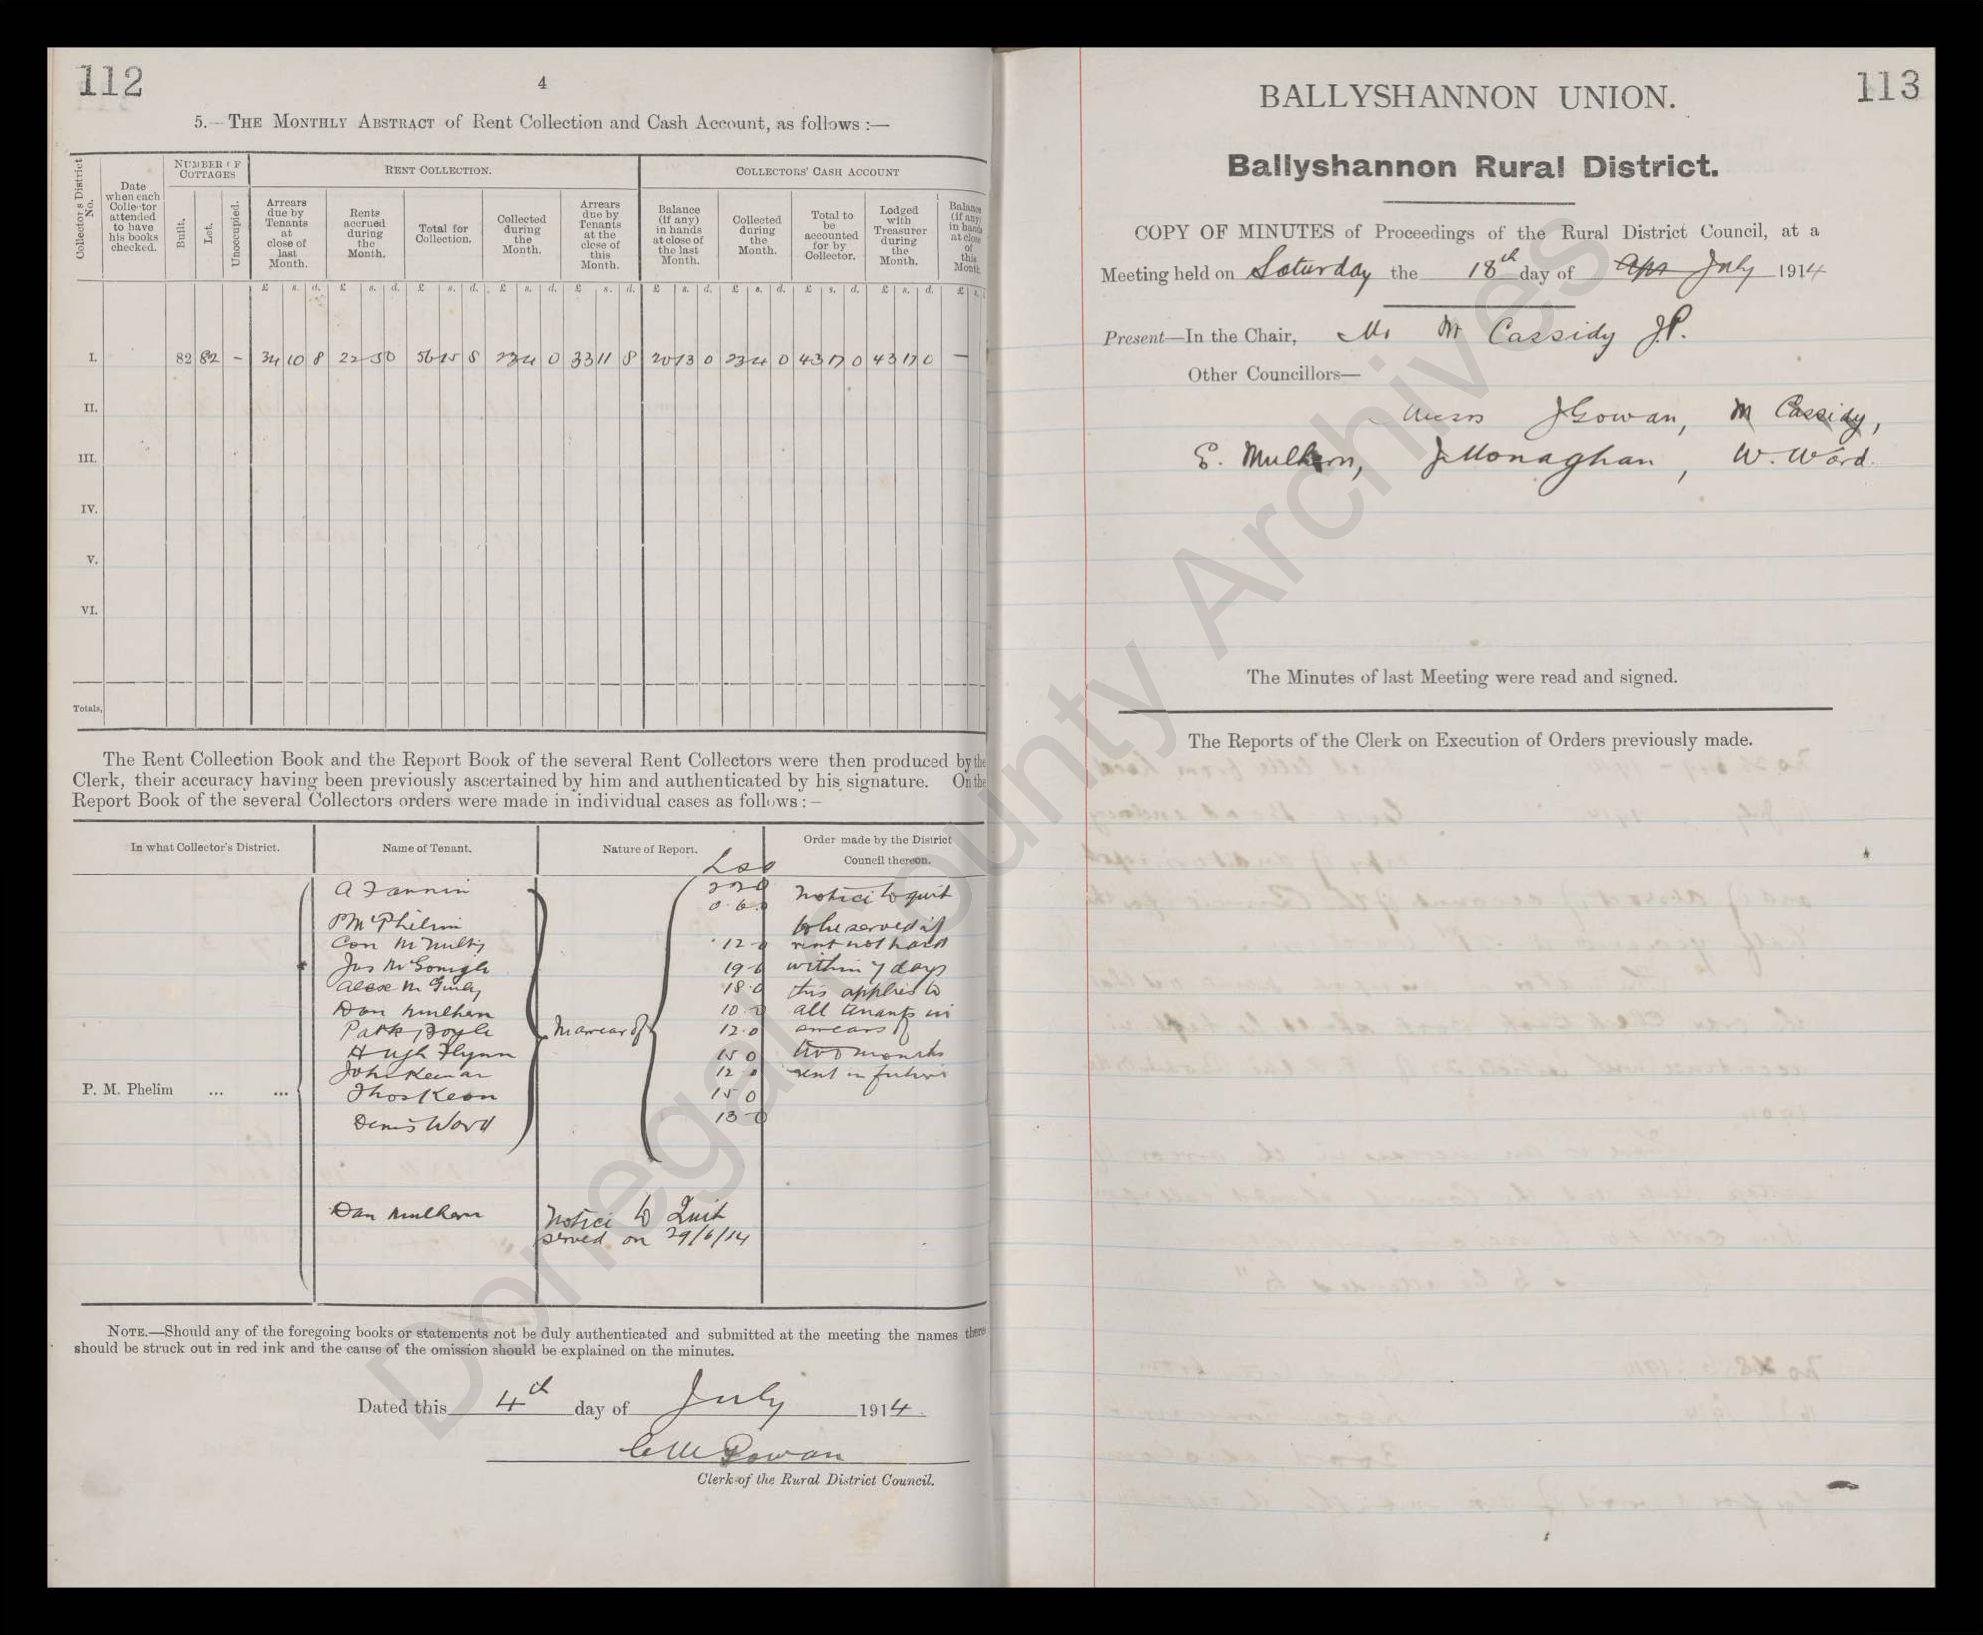 112
4
5.—THE MONTHLY ABSTRACT of Rent Collection and Cash Account, as follows :—
Collector's District No.
Date when each Collector attended to have his books checked.
NUMBER OF COTTAGES
Built.
Let.
Unoccupied.
RENT COLLECTION.
Arrears due by Tenants at close of last Month.
Rents accrued during the Month.
Total for Collection.
Collected during the Month.
Arrears due by Tenants at the close of this Month.
COLLECTORS' CASH ACCOUNT
Balance (if any) in hands at close of the last Month.
Collected during the Month.
Total to be accounted for by Collector.
Lodged with Treasurer during the Month.
Balance (if any) in hands at close of this Month
£ s. d. £ s. d. £ s. d. £ s. d. £ s. d. £ s. d. £ s. d. £ s. d. £ s. d. £ s.
I. 82 82 – 34 10 8 22 5 0 56 15 8 23 4 0 33 11 8 20 13 0 23 4 0 43 17 0 43 17 0 —
II.
III.
IV.
V.
VI.
Totals,
The Rent Collection Book and the Report Book of the several Rent Collectors were then produced by the
Clerk, their accuracy having been previously ascertained by him and authenticated by his signature. On the
Report Book of the several Collectors orders were made in individual cases as follows :—
In what Collector's District. Name of Tenant. Nature of Report. Order made by the District Council thereon.
£ s d
A Fannin 2 2 0 Notice to quit
0 6 0
P McPhelim to be served if
Con McNulty 12 0 rent not paid
Jas McGonigle 19 6 within 7 days
Alexr McGinley 18 0 this applies to
Dan Mulhern 10 0 all tenants in
Patk Doyle In arrear of 12 0 arrears of
Hugh Flynn 15 0 two months
John Keenan 12 0 rent in future
P. M. Phelim ... ... Thos Keon 15 0
Denis Ward 13 0
Dan Mulhern Notice to Quit
served on 29/6/14
NOTE.—Should any of the foregoing books or statements not be duly authenticated and submitted at the meeting the names there
should be struck out in red ink and the cause of the omission should be explained on the minutes.
Dated this 4th day of July 1914.
Clerk of the Rural District Council.
113
BALLYSHANNON UNION.
Ballyshannon Rural District.
COPY OF MINUTES of Proceedings of the Rural District Council, at a
Meeting held on Saturday the 18th day of Apr July 1914
Present—In the Chair, Mr M Cassidy J.P.
Other Councillors—
Messrs J Gowan, M Cassidy,
E. Mulhern, J Monaghan, W. Ward.
The Minutes of last Meeting were read and signed.
The Reports of the Clerk on Execution of Orders previously made.
Donegal County Archives